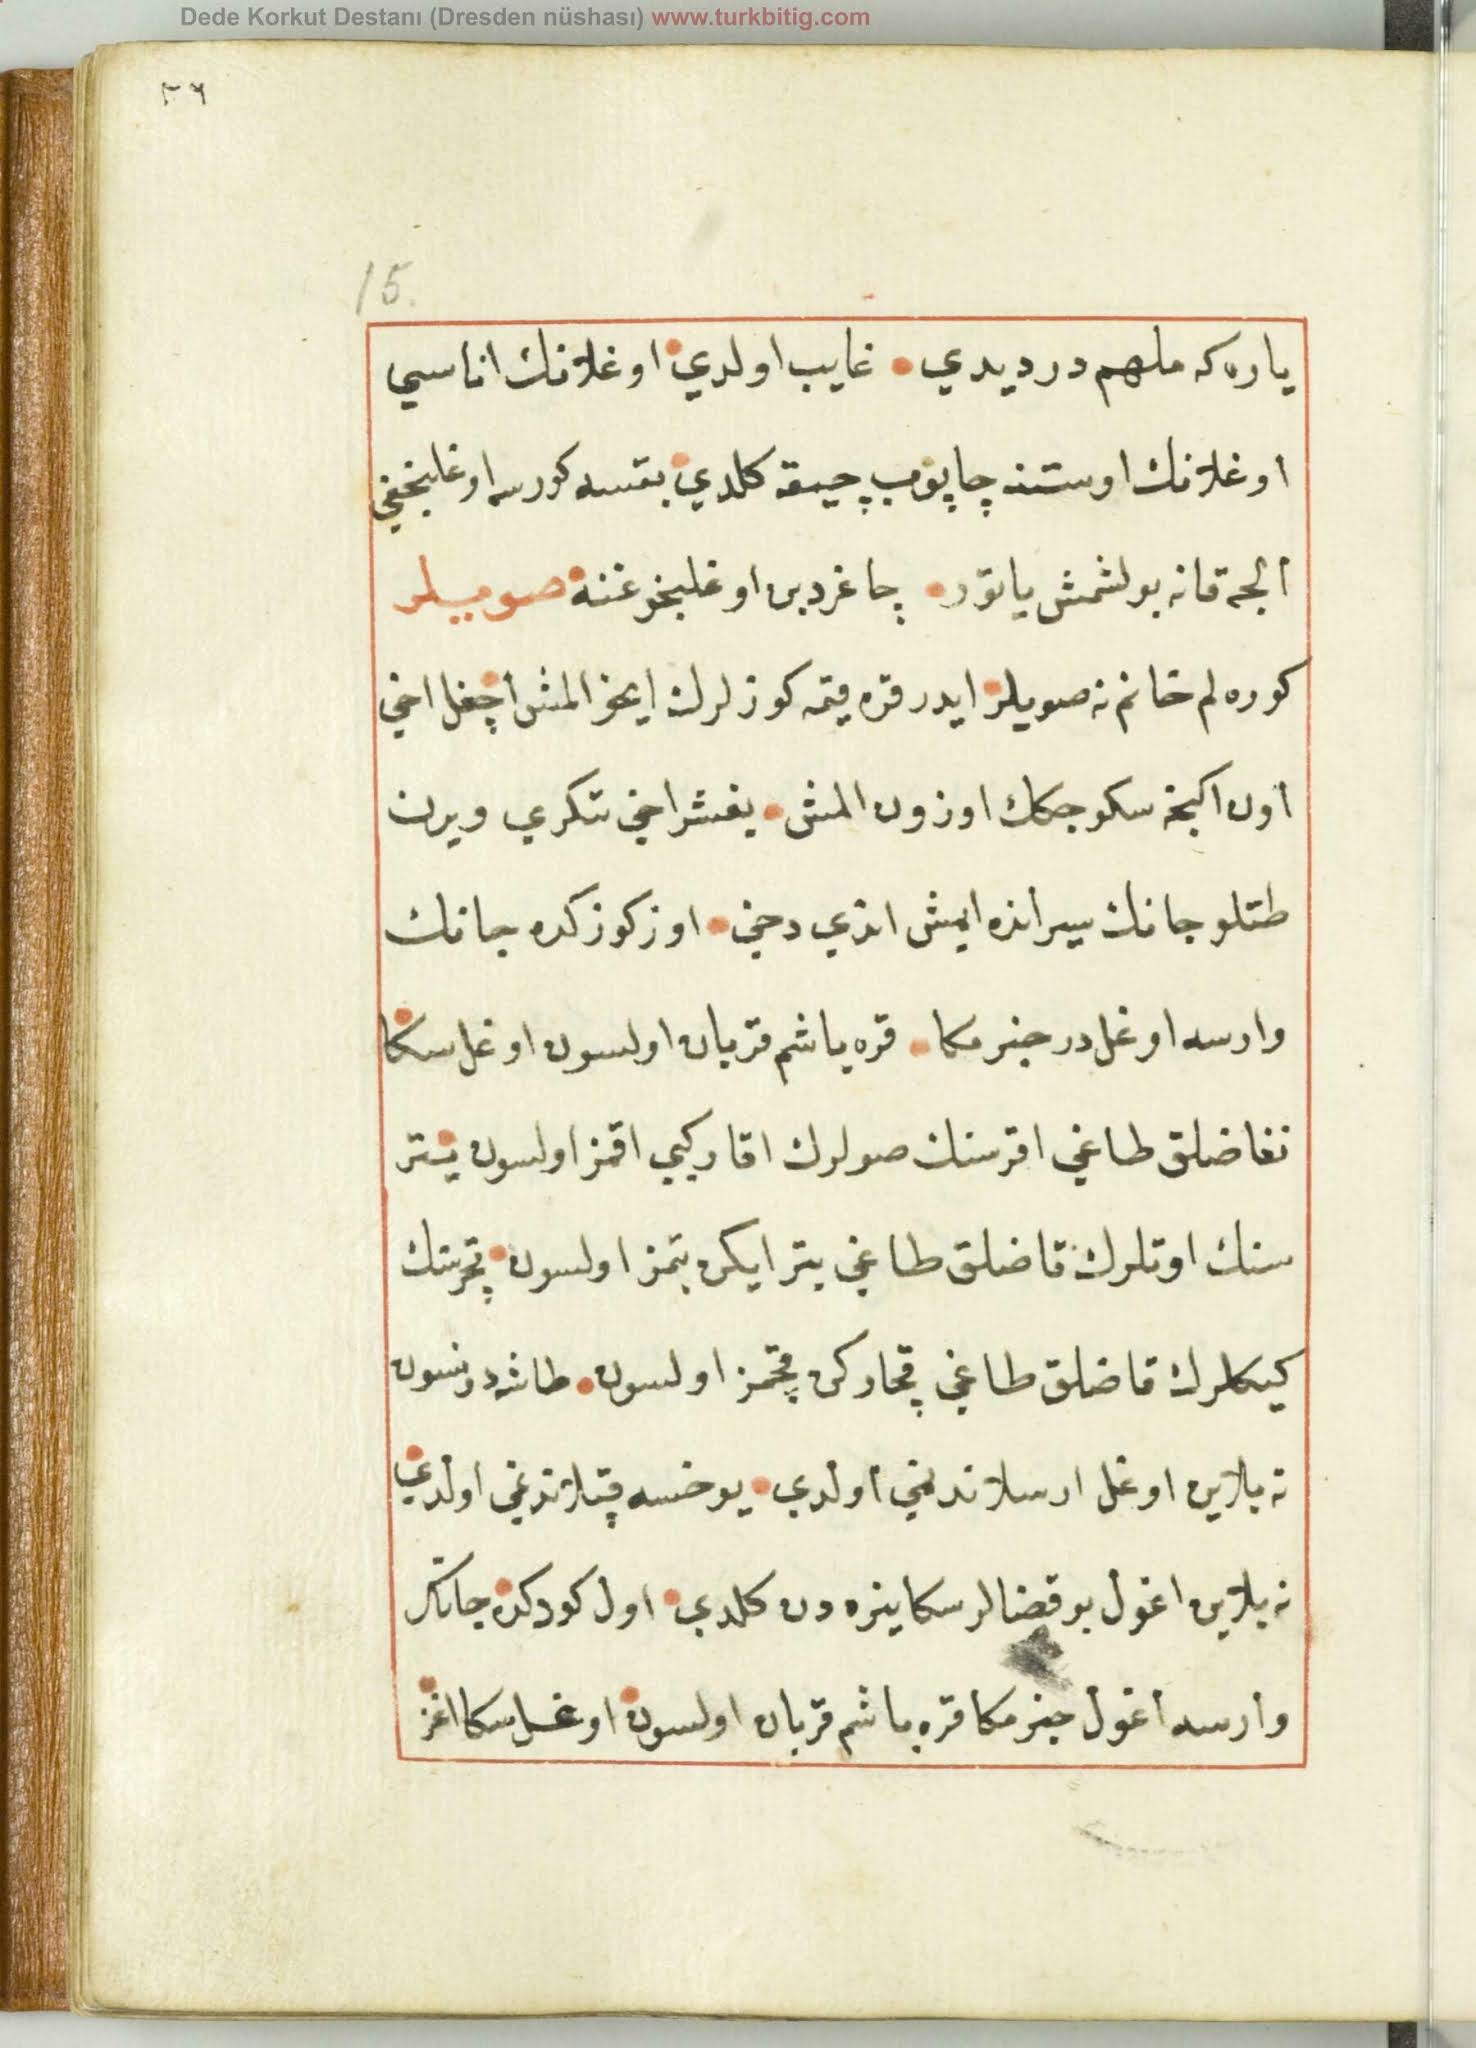 Dede Korkut Destanı (Dresden nüshası) www.turkbitig.com
٢٦
15.
ياره که ملهم در ديدي غايب اولدي اوغلانك اناسي
اوغلانك اوستنه چاپوب چيقه کلدي بقسه کورسه اوغلنجغي
الجه قانه بولشمش ياتور چاغردبن اوغلنجوغنه صويلر
کوره لم خانم نه صويلر ايدر قره قيمه کوزلرك ايخو المش اچغل اخي
اون اکيجه سکوجکك اوزون المش يغشر اخي تنکري ويرن
طتلو جانك سيرانده ايمش اندي دخي اوز کوزکده جانك
وارسه اوغل در خبر مکا قره باشم قربان اولسون اوغل سکا
قاضلق طاغي اقر سنك صولرك اقار کبي اقمز اولسون بتر
سنك اوتلرك قاضلق طاغي بتر ايکن بتمز اولسون قچر سنك
کيکلرك قاضلق طاغي قچارکن قچمز اولسون طاشه دونسون
نه بلاين اوغل ارسلاندنمي اولدي يوخسه قپلاندنمي اولدي
نه بلاين اغول بو قضالر سکا ينزه دن کلدي اول کودکده جانك
وارسه اغول خبر مکا قره باشم قربان اولسون اوغل سکا اغز